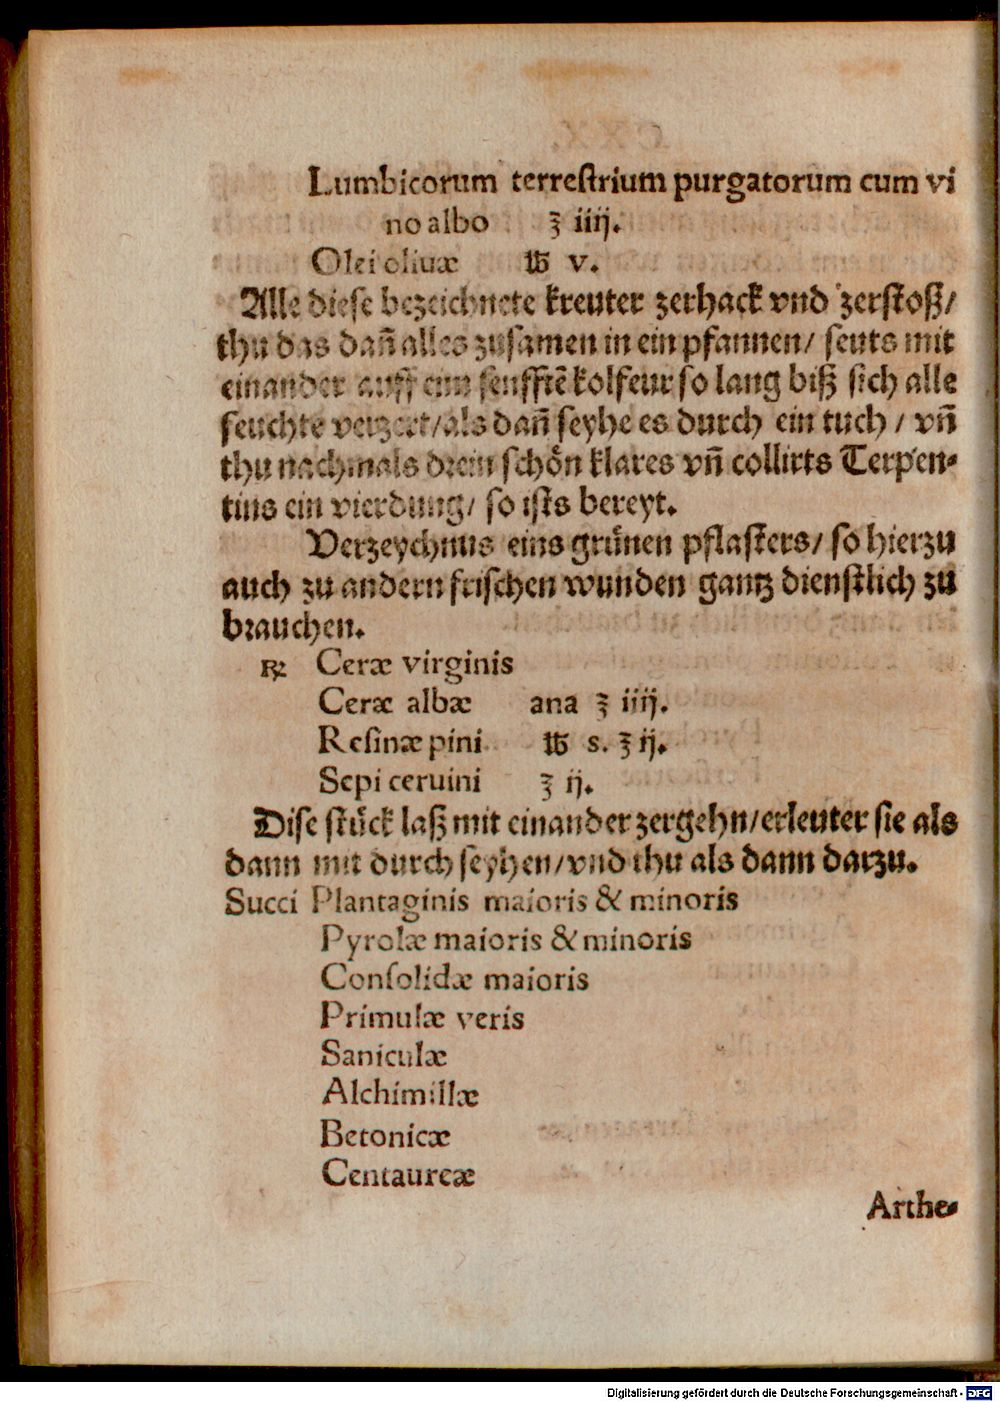 Lumbicorum terrestrium purgatorum cum vi
no albo ℥ iiij.
Olei oliuæ ℔ v.
Alle diese bezeichnete kreuter zerhack vnd zerstoß/
thu das dañ alles zusamen in ein pfannen/ seuts mit
einander auff eim senfftẽ kolfeur so lang biß sich alle
feuchte verzert/als dañ seyhe es durch ein tuch / vñ
thu nachmals drein schön klares vñ collirts Terpen-
tins ein vierdung/ so ists bereyt.
Verzeychnus eins grünen pflasters/ so hierzu
auch zu andern frischen wunden gantz dienstlich zu
brauchen.
℞ Ceræ virginis
Ceræ albæ ana ℥ iiij.
Resinæ pini ℔ s. ℥ ij.
Sepi ceruini ℥ ij.
Dise stück laß mit einander zergehn/erleuter sie als
dann mit durch seyhen/vnd thu als dann darzu.
Succi Plantaginis maioris & minoris
Pyrolæ maioris & minoris
Consolidæ maioris
Primulæ veris
Saniculæ
Alchimillæ
Betonicæ
Centaureæ
Arthe-
Digitalisierung gefördert durch die Deutsche Forschungsgemeinschaft - DFG